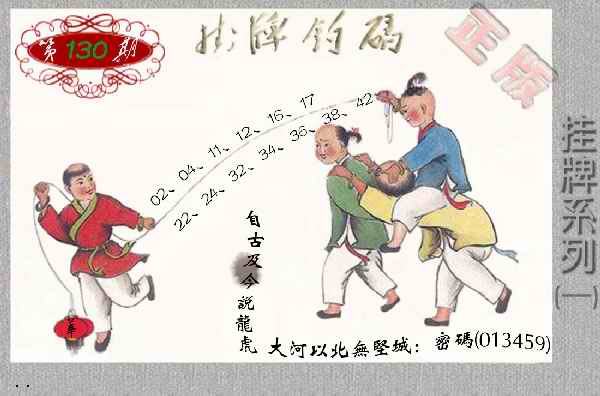 第130期
挂牌钓码
正版
挂牌系列(一)
02、04、11、12、16、17
22、24、32、34、36、38、42
自古及今説龍虎
大河以北無堅城：密碼(013459)
華